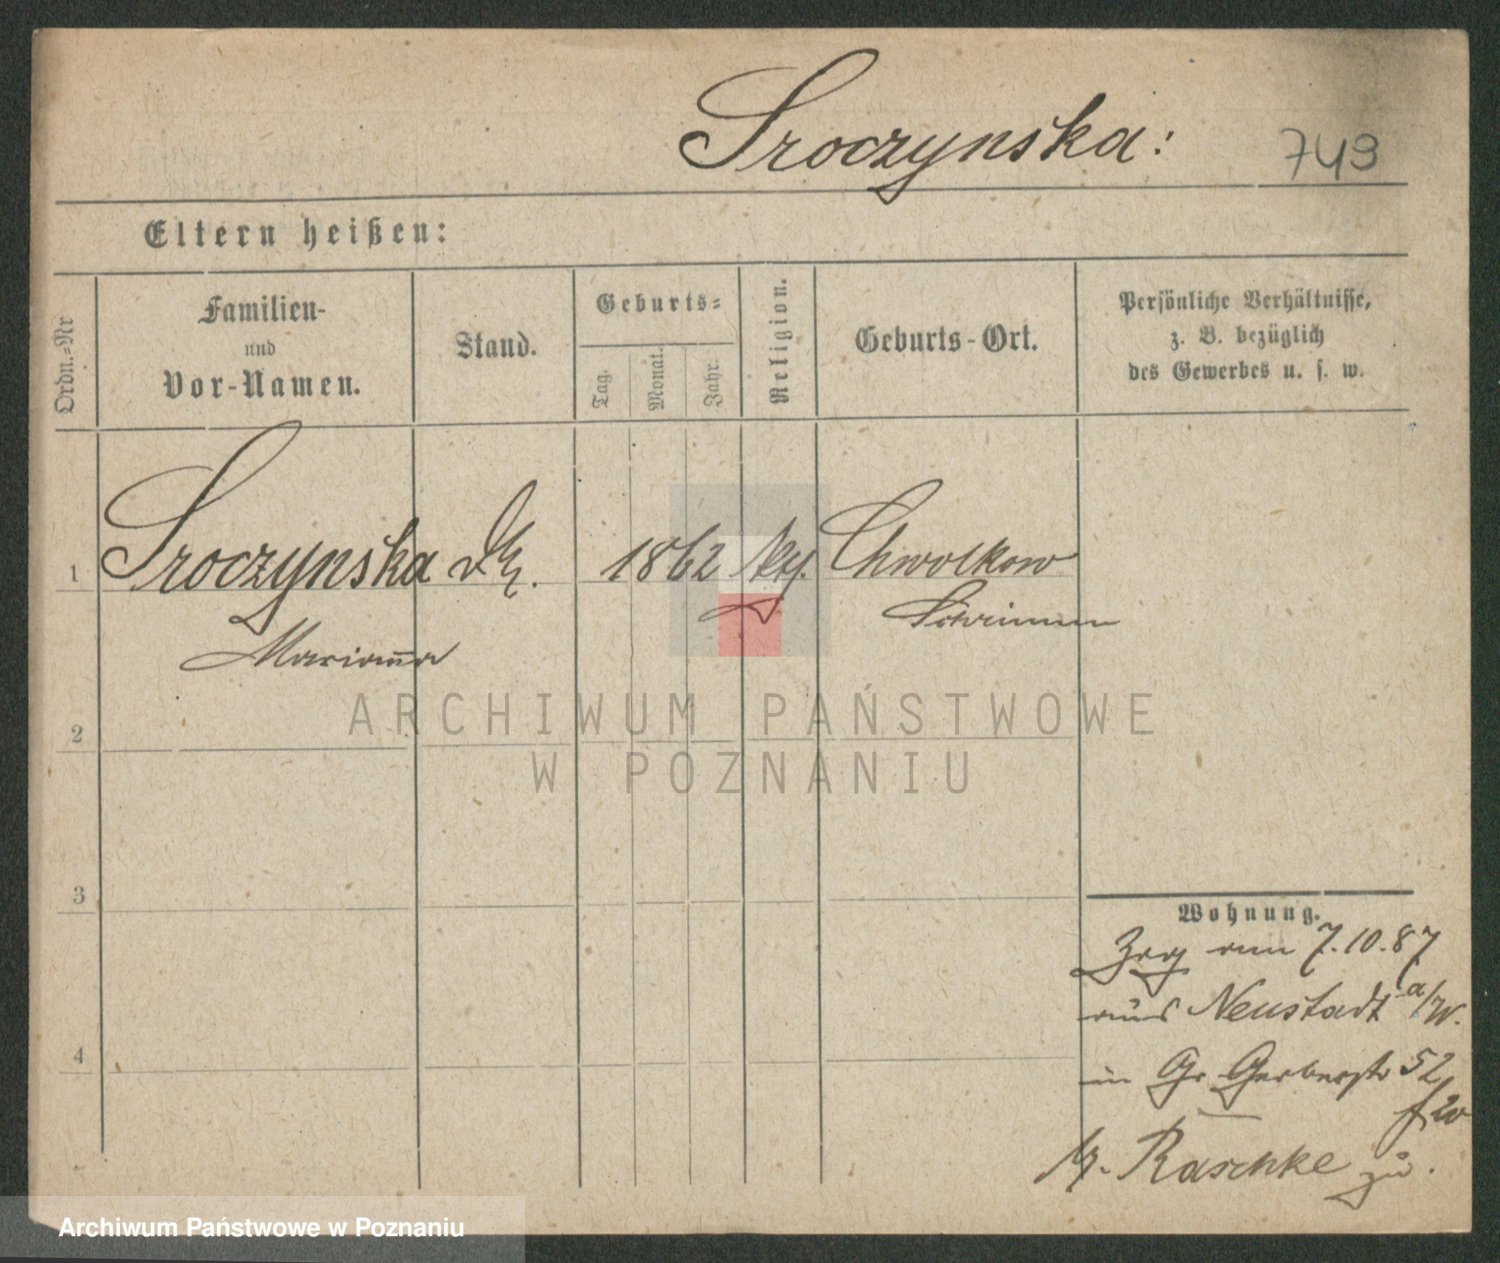 Sroczynska:
743
Eltern heißen:
Ordn.-Nr
Familien-
und
Vor-Namen.
Stand.
Geburts-
Tag.
Monat.
Jahr.
Religion.
Geburts-Ort.
Persönliche Verhältnisse,
z. B. bezüglich
des Gewerbes u. s. w.
1
Sroczynska
1862
Chwolkow
Marianna
Schrimm
ARCHIWUM PAŃSTWOWE
2
W POZNANIU
3
Wohnung.
Zug am 7.10.87
aus Neustadt a/W.
4
in Gr Gerberstr 52
Raschke zu.
Archiwum Państwowe w Poznaniu